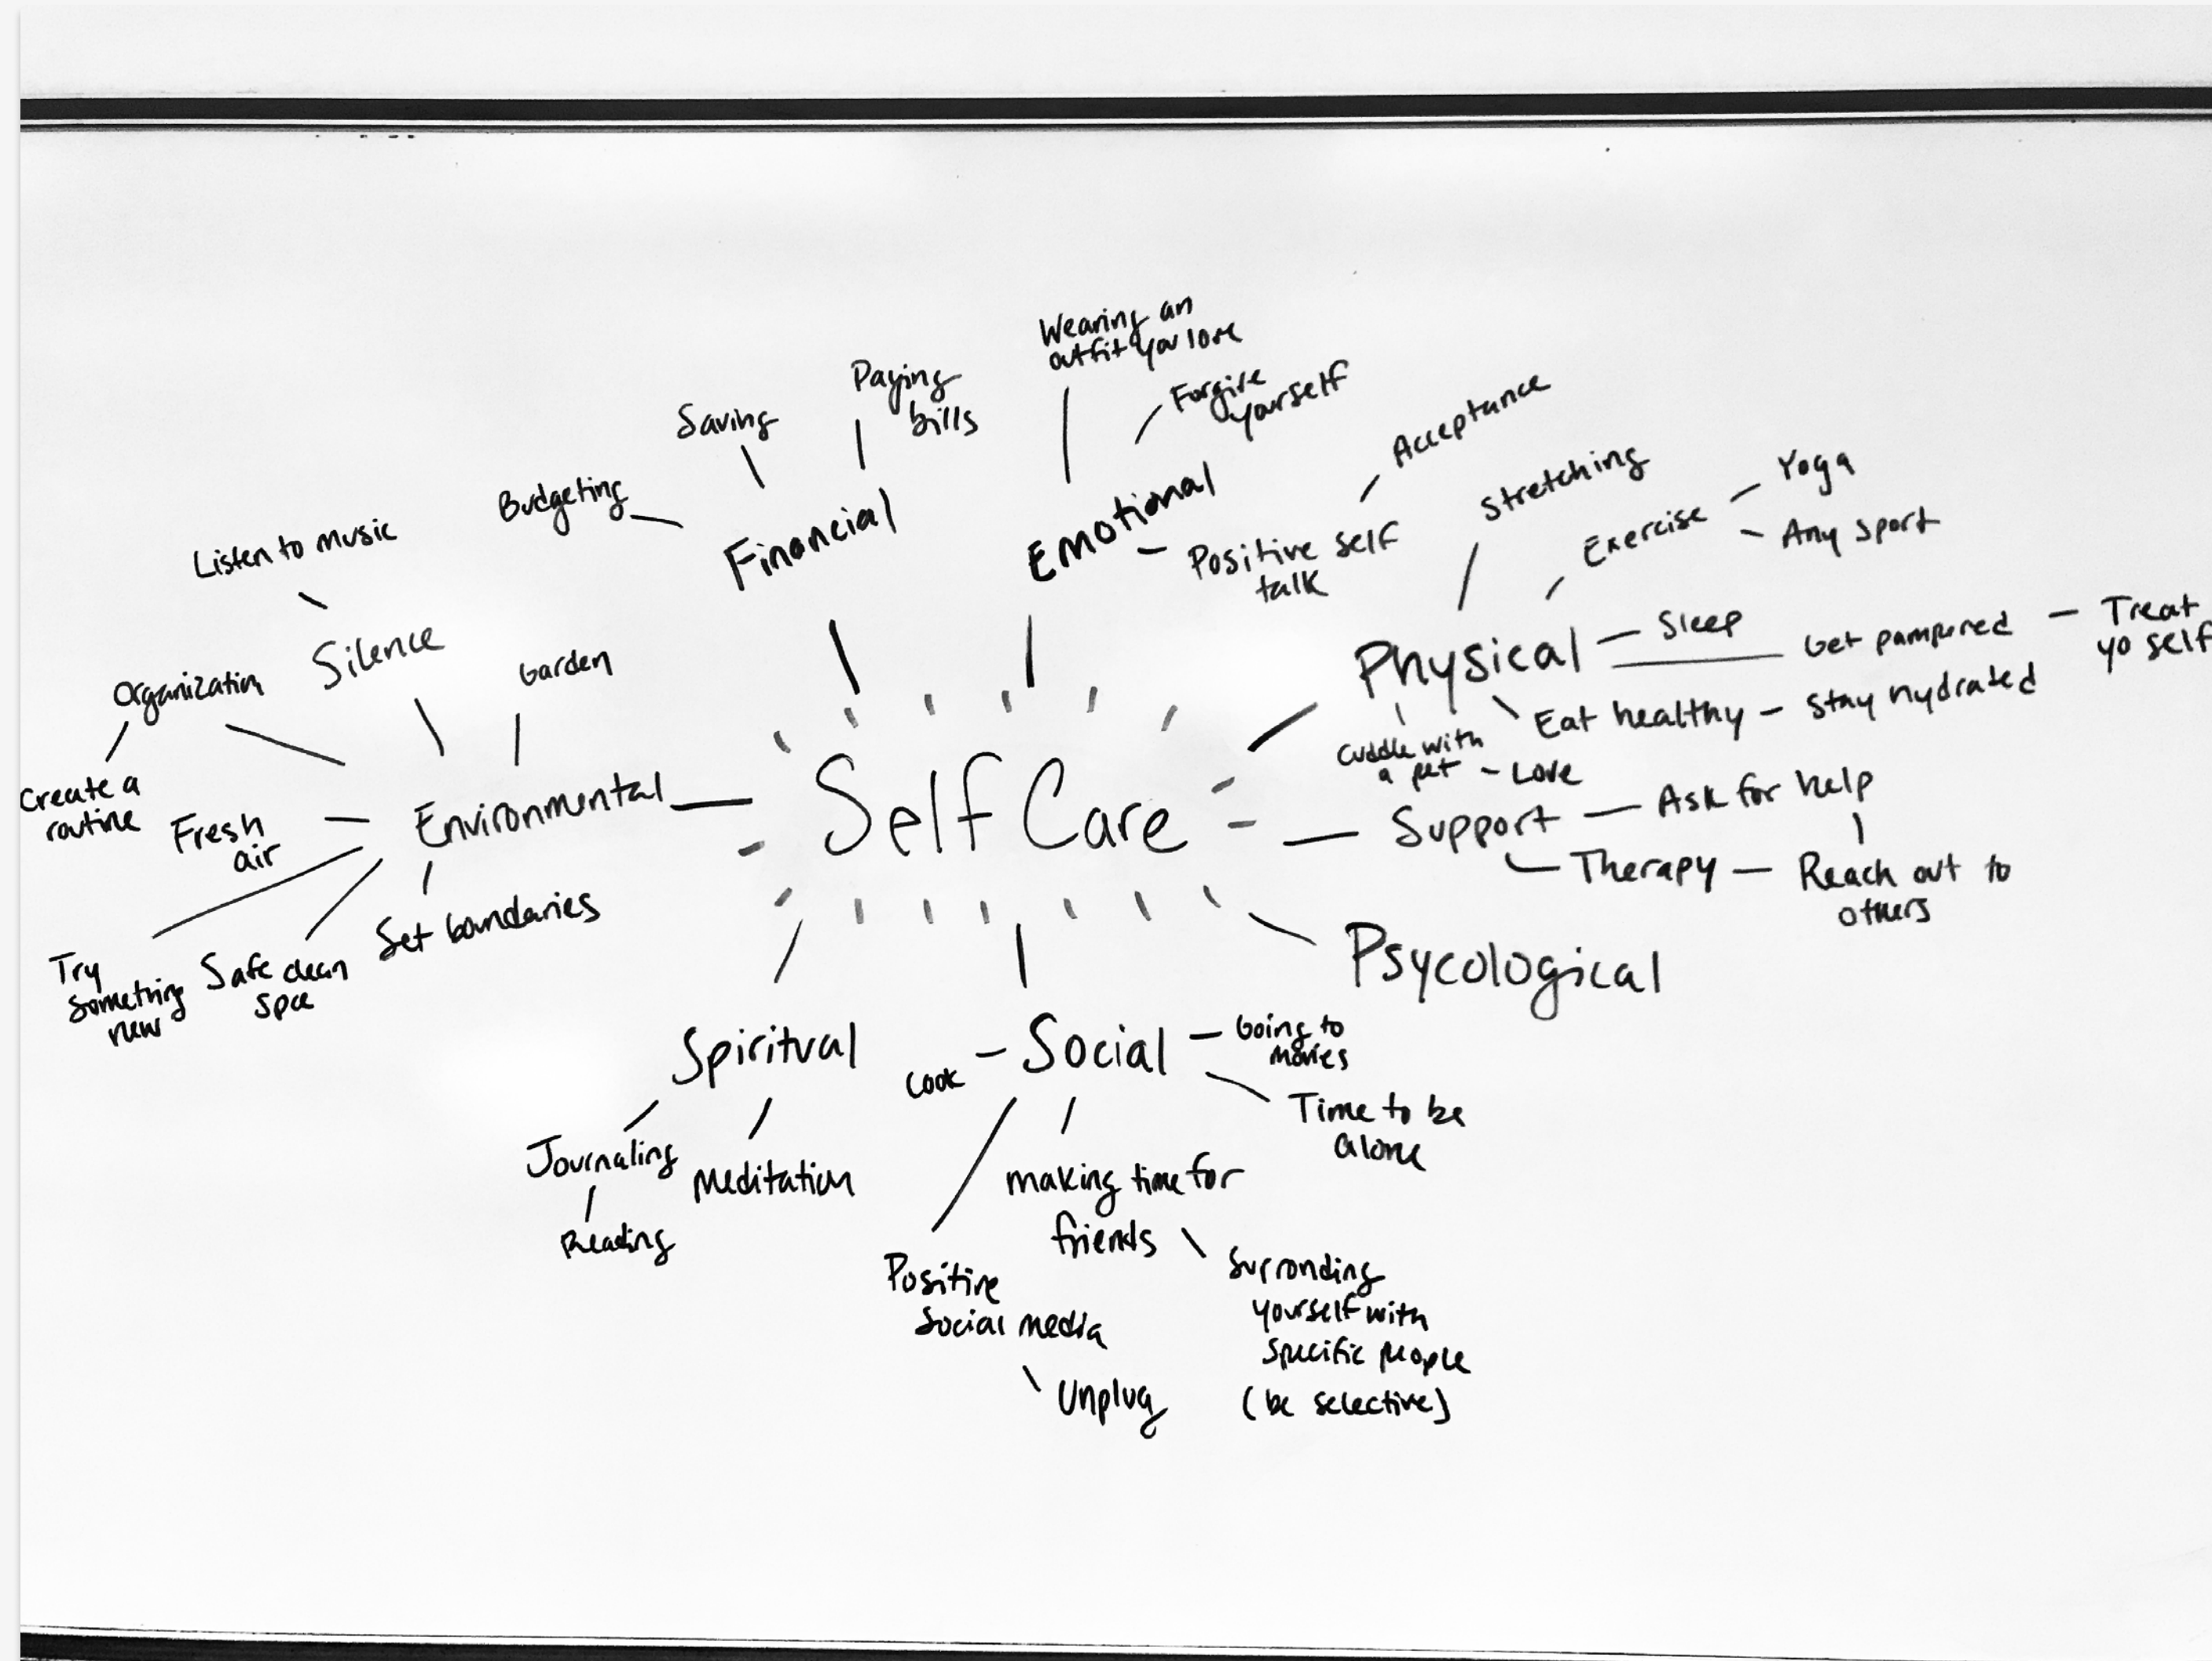 Self Care
Financial
Budgeting
Saving
Paying
bills
Emotional
Wearing an
outfit you love
Forgive
yourself
Positive self
talk
Acceptance
Physical
Stretching
Exercise
Yoga
Any sport
Sleep
Get pampered
Treat
yo self
Eat healthy
Stay hydrated
Cuddle with
a pet
Love
Support
Ask for help
Therapy
Reach out to
others
Psycological
Social
Going to
movies
Time to be
alone
making time for
friends
Surronding
yourself with
specific people
(be selective)
Positive
social media
Unplug
Cook
Spiritual
Journaling
Reading
Meditation
Environmental
Garden
Silence
Listen to music
Organization
Create a
routine
Fresh
air
Try
something
new
Safe clean
spce
Set boundaries